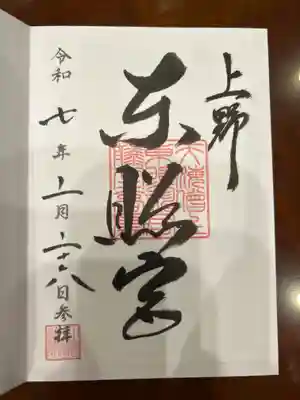 上野
東照宮
令和七年 月二十八日参拝